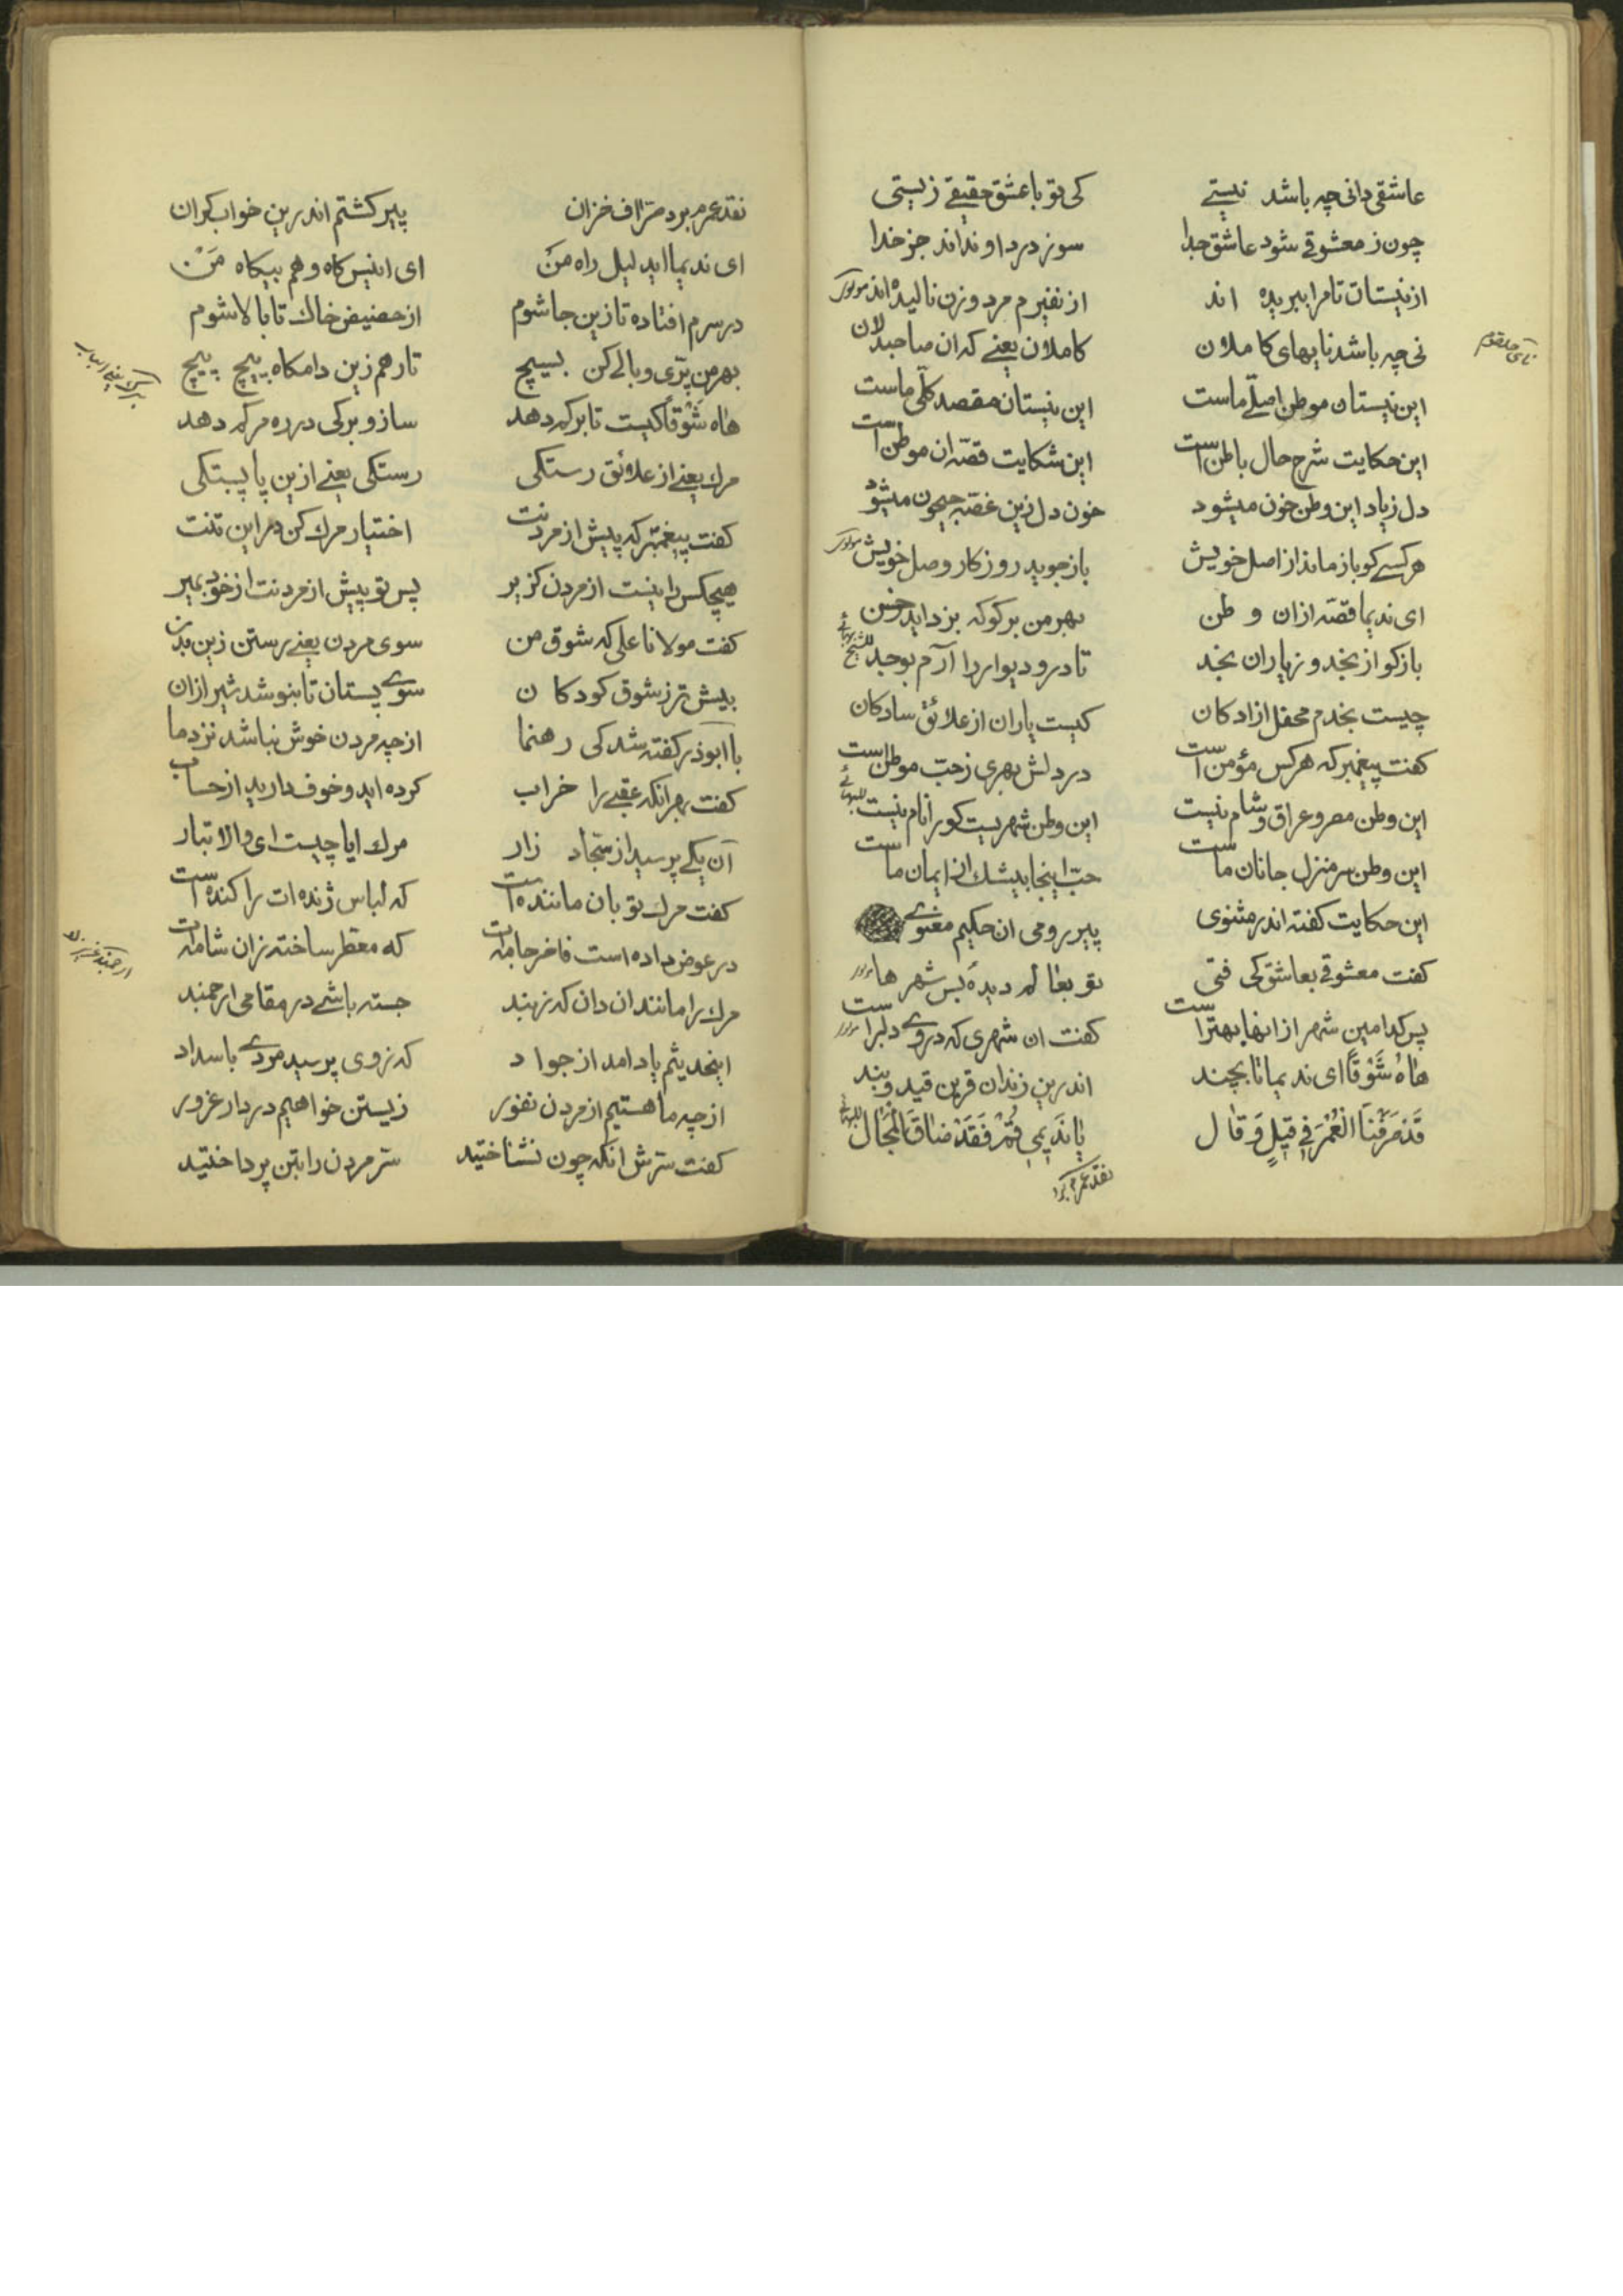 عاشقی دانی چه باشد نیستے کی تو با عشق حقیقے زیستی
چون ز معشوقے شود عاشق جدا سوز درد او نداند جز خدا
از نیستان تا مرا ببریده اند از نفیرم مرد و زن نالیده اند
نی چه باشد نایهای کاملان کاملان یعنے که ان صاحبدلان
این نیستان موطن اصلے ماست این نیستان مقصد کلّی ماست
این حکایت شرح حال باطن است این شکایت قصّه ان موطن است
دل زیاد این وطن خون میشود خون دل زین غصّه جیحون میشود
هر کسے کو باز ماند از اصل خویش باز جوید روزکار وصل خویش
ای ندیما قصّه ازان وطن بهر من برکو که بزداید حزن
بازکو از نجد و ز یاران نجد تا در و دیوار را آرم بوجد
چیست نجدم محفل ازادکان کیست یاران از علائق سادکان
کفت پیغمبر که هر کس مؤمن است در دلش بهری ز حبّ موطن است
این وطن مصر و عراق و شام نیست این وطن شهریست کورا نام نیست
این وطن سر منزل جانان ماست حبّ اینجا بیشک از ایمان ماست
این حکایت کفته اند مثنوی پیر رومی ان حکیم معنوے
کفت معشوقے بعاشق کی فتی تو بعالم دیدهٔ بس شهرها
پس کدامین شهر از انها بهتر است کفت ان شهری که در وے دلبر است
هاهُ شَوْقاً ای ندیما تا بچند اندرین زندان قرین قید و بند
قَدْ صَرَفْنَا الْعُمْرَ فِی قِیلٍ وَ قال یا نَدِیمِی قُمْ فَقَدْ ضاقَ الْمَجَال
نقد عمرم برد
نقد عمرم برد صرّاف خزان پیر کشتم اندرین خواب کران
ای ندیما اید لیل راه من ای انیس کاه و هم بیکاه من
در سرم افتاده تا زین جا شوم از حضیض خاك تا بالا شوم
بهر من پرّی و بالے کن بسیچ تا رهم زین دامکاه پیچ پیچ
هاه شَوْقاً کیست تا برکم دهد ساز و برکی در ره مرکم دهد
مرك یعنے از علائق رستکی رستکی یعنے ازین پا بستکی
کفت پیغمبر که پیش از مردنت اختیار مرك کن در این تنت
هیچکس را نیست از مردن کزیر پس تو پیش از مردنت از خود بمیر
کفت مولانا علی که شوق من سوی مردن یعنے رستن زین بدن
بیش تر ز شوق کودکان سوے پستان تا بنوشد شیر ازان
با ابوذر کفته شد کی رهنما از چه مردن خوش نباشد نزد ما
کفت بهر انکه عقبے را خراب کرده اید و خوف دارید از حساب
آن یکے پرسید از سجّاد زار مرك ایا چیست ای والا تبار
کفت مرك تو بان ماننده است که لباس ژنده ات را کنده است
در عوض داده است فاخر جامه ات که معطر ساخته زان شامه ات
مرك را مانند ان دان که ز بند جسته باشے در مقامی ارجمند
اینحدیثم یاد امد از جواد که ز وی پرسید مردے با سداد
از چه ما هستیم از مردن نفور زیستن خواهیم در دار غرور
کفت سترش انکه چون نشناختید ستر مردن را بتن پرداختید